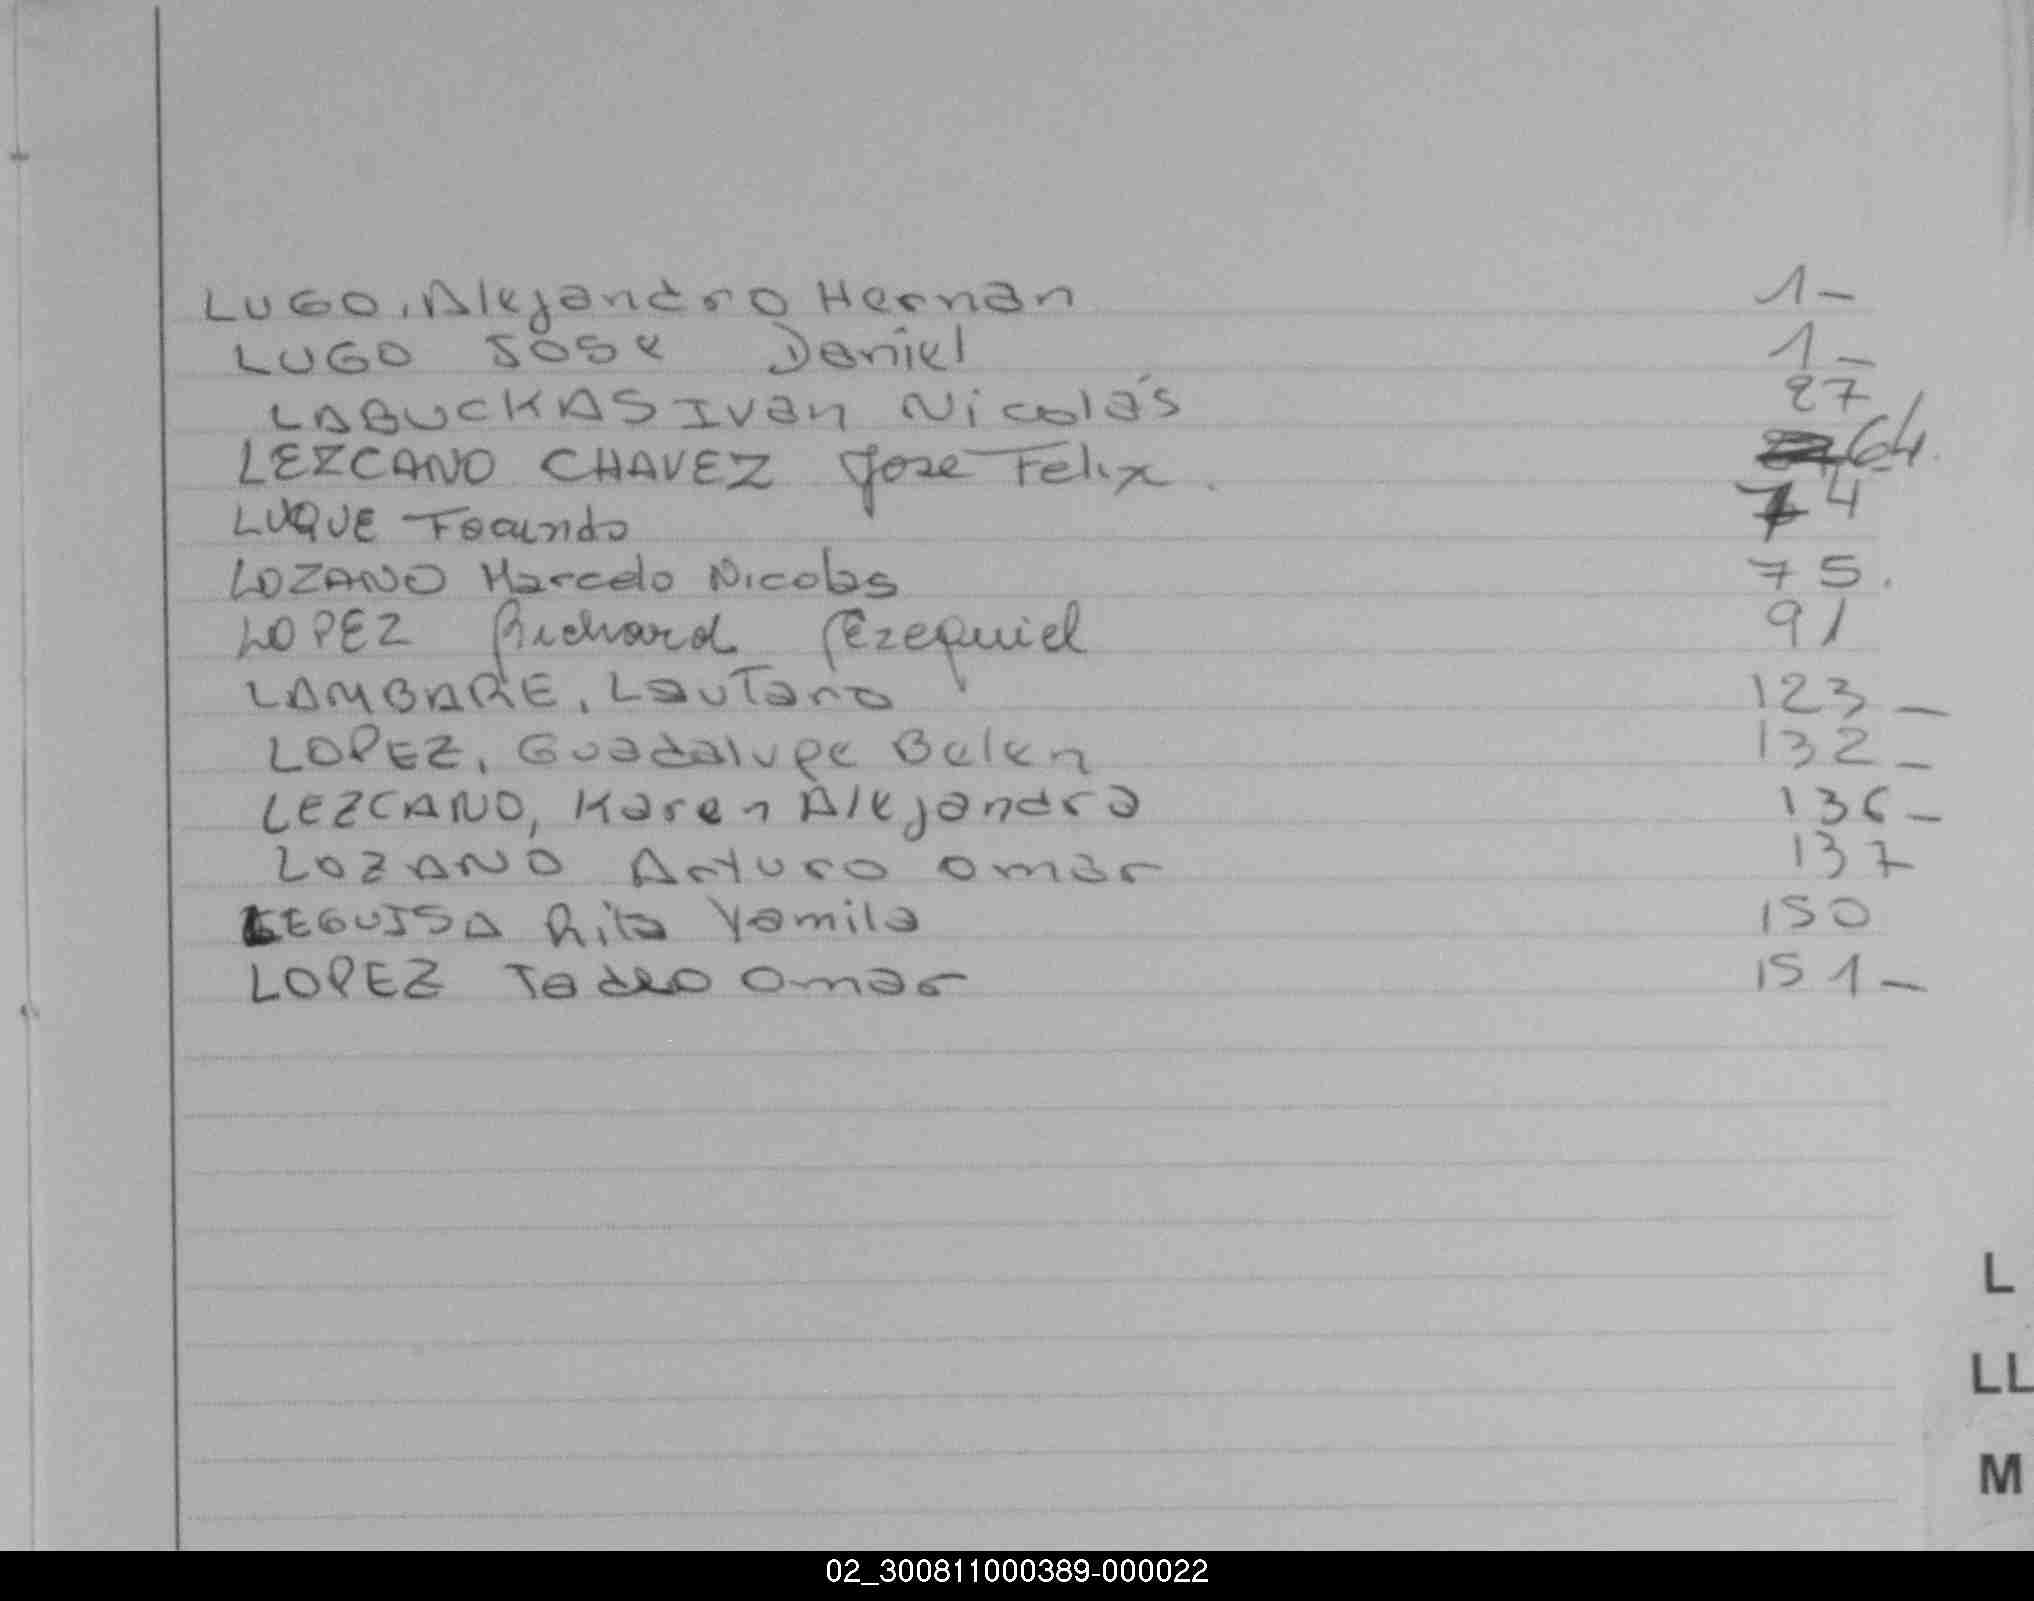 LUGO, Alejandro Hernan 1-
LUGO Jose Daniel 1-
LABUCKAS Ivan Nicolás 27
LEZCANO CHAVEZ Jose Felix. 64.
LUQUE Facundo 74
LOZANO Marcelo Nicolas 75.
LOPEZ Richard Ezequiel 91
LAMBARE, Lautaro 123-
LOPEZ, Guadalupe Belen 132-
LEZCANO, Karen Alejandra 136-
LOZANO Arturo Omar 137
LEGUISA Rita Yamila 150
LOPEZ Tadeo Omar 151-
L
LL
M
02_300811000389-000022